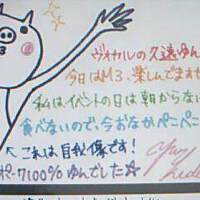 ヴォカルの久遠ゆん
今日はM3、楽しんでますか
私はイベントの日は朝からな
食べないので、今おなかペーペー
← これは自我像です!
ポーク100%ゆんでした☆